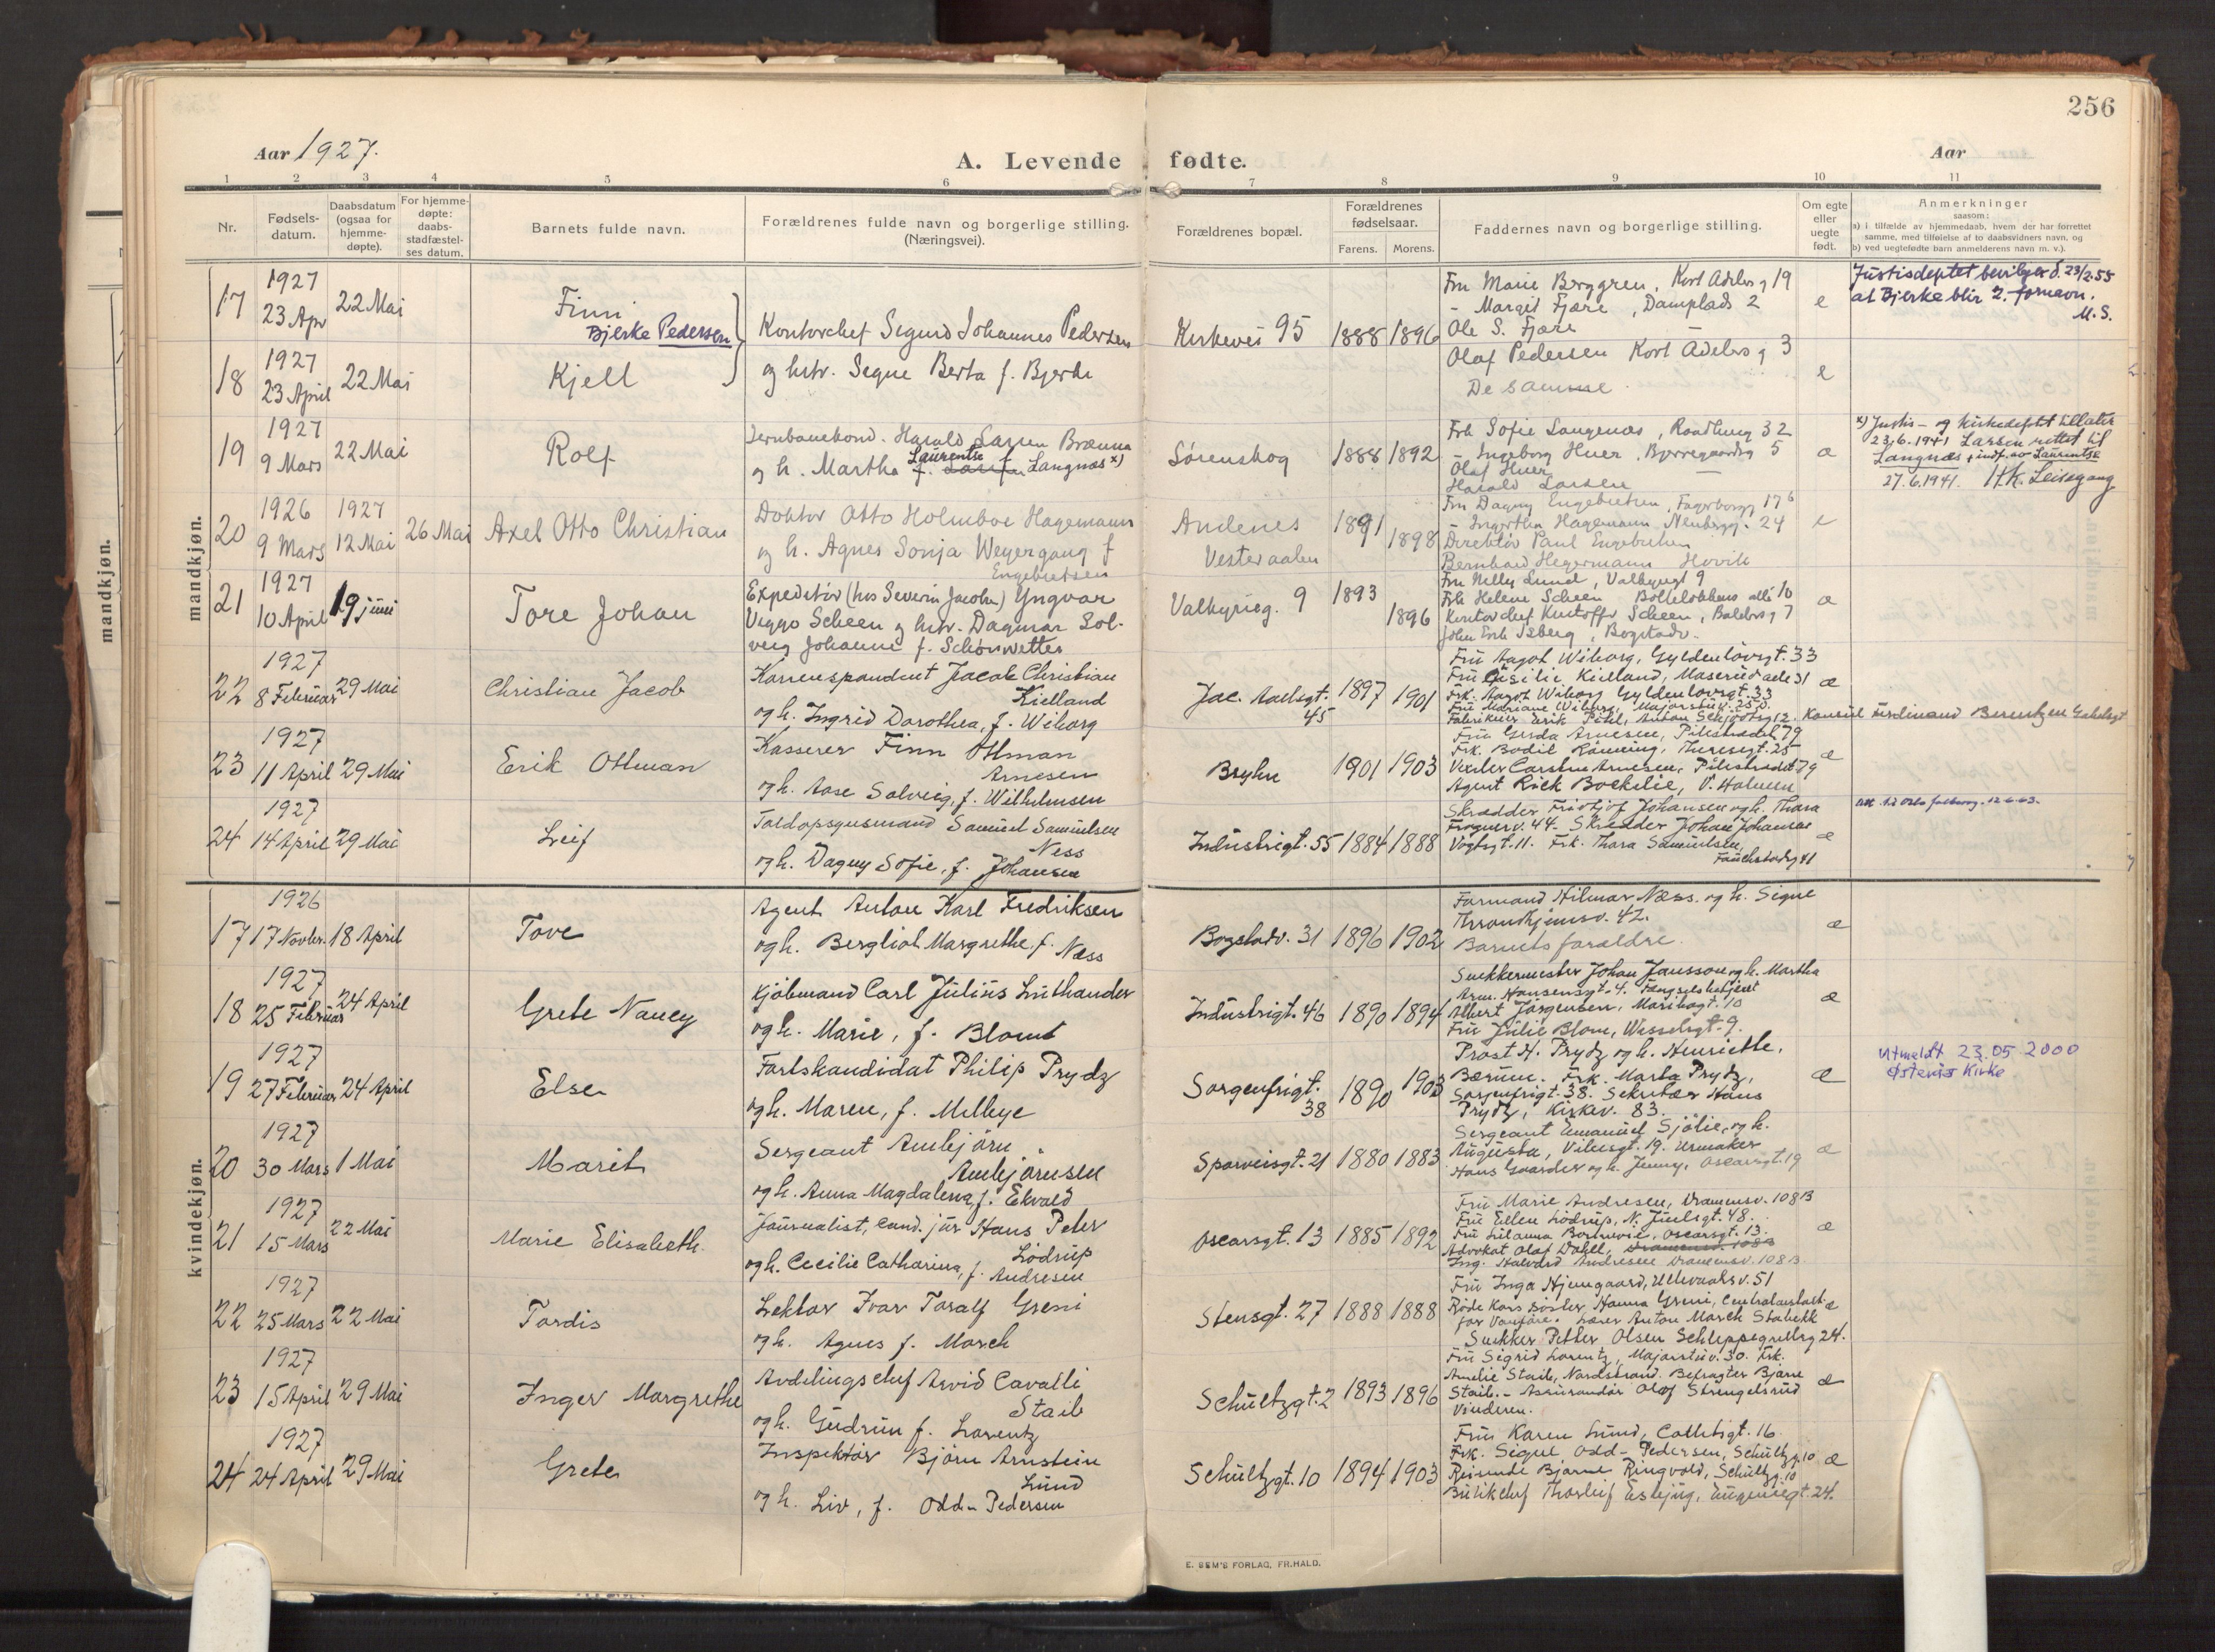 256
Aar 1927.
A. Levende fødte.
Aar
1 2 3 4 5 6 7 8 9 10 11
Nr.
Fødsels-
datum.
Daabsdatum
(ogsaa for
hjemme-
døpte).
For hjemme-
døpte:
daabs-
stadfæstel-
ses datum.
Barnets fulde navn.
Forældrenes fulde navn og borgerlige stilling.
(Næringsvei).
Forældrenes bopæl.
Forældrenes
fødselsaar.
Farens. Morens.
Faddernes navn og borgerlige stilling.
Om egte
eller
uegte
født.
Anmerkninger
saasom:
a) i tilfælde av hjemmedaab, hvem der har forrettet
samme, med tilføielse af to daabsvidners navn, og
b) ved uegtefødte barn anmelderens navn m. v.).
mandkjøn.
mandkjøn.
17
1927
23 Apr
22 Mai
Finn
Bjerke Pedersen
Kontorchef Sigurd Johannes Pedersen
Kirkevei 95
1888 1896
Fru Marie Berggren, Kort Adelersg 19
- Margit Fjære, Damplads 2
Ole S. Fjære
Olaf Pedersen Kort Adelersg 3
e
Justisdeptet beviliger d. 23/2.55
at Bjerke blir 2. fornavn.
M.S.
18
1927
23 April
22 Mai
Kjell
og hstr. Signe Berta f. Bjerke
De samme.
e
19
1927
9 Mars
22 Mai
Rolf
Jernbanebond. Harald Larsen Brænna
og h. Martha Laurentse f. Langnæs x)
Sørenskog
1888 1892
Frk Sofie Langenæs, 32
- Ingeborg Huer, 5
Olaf Huer
Harald Larsen
æ
x) Justis- og kirkedeptet tillater
23.6.1941 Larsen rettet til
Langnæs + indf. av Laurentse
27.6.1941. H.K. Leisegang
20
1926
9 Mars
1927
12 Mai
26 Mai
Axel Otto Christian
Doktor Otto Holmboe Hagemann
og h. Agnes Sonja Weyergang f
Engebretsen
Andenes
Vesteraalen
1891
1898
Fru Dagny Engebretsen, Fagerborgg 17 6
- Ingertha Hagemann, Neubergg. 24
Direktør Paul Engebretsen
Bernhard Hegermann Høvik
e
21
1927
10 April
19 juni
Tore Johan
Expeditør (hos Severin Jacobs) Yngvar
Viggo Scheen og hstr. Dagmar Sol-
veig Johanne f. Schönwetter
Valkyrieg. 9
1893
1896
Fru Nelly Lund, Valkyrigt 9
Frk Helene Scheen Bølleløkkens allé 10
Kontorchef Kristoffer Scheen, Baldersg 7
John Erik Isberg, Bogstadv.
æ
22
1927
8 Februar
29 Mai
Christian Jacob
Korrespondent Jacob Christian
Kielland
og h. Ingrid Dorothea, f. Wiborg
Jac. Aallsgt.
45
1897 1901
Fru Aagot Wiborg, Gyldenløvsgt. 33
Fru Cisilie Kielland, Maserud alle 31
Frk. Aagot Wiborg Gyldenløvsgt. 33
Fru Mariane Wiborg, Majorstuv. 25 b.
Fabrikeier Erik Pihl, Anton Schjødtsg 12. Konsul Ferdinand Berentzen Gabelsgt
æ
23
1927
11 April
29 Mai
Erik Othman
Kasserer Finn Othman
Arnesen
og h. Aase Solveig, f. Wilhelmsen
Bryhn
1901 1903
Fru Gerda Arnesen, Pilestrædet 79
Frk. Bodil Rønning, Theresegt. 25
Carsten Arnesen, Pilestrædet 79
Agent Rick Boekelie, V. Holmen
æ
24
1927
14 April
29 Mai
Leif
Toldopsynsmand Samuel Samuelsen
Ness
og h. Dagny Sofie, f. Johansen
Industrigt. 55
1884 1888
Skrædder Fridtjof Johansen og h. Thora
Frognerv. 44. Skrædder Johan Johansen
Vogtsgt. 11. Frk. Thora Samuelsen,
Fauchaldsg 41
æ
kvindekjøn.
17
1926
17 Novbr.
18 April
Tove
Agent Anton Karl Fredriksen
og h. Bergliot Margrethe f.
Næss
Bogstadv. 31
1896 1902
Formand Hilmar Næss. og h. Signe
Throndhjemsv. 42.
Barnets forældre.
æ
18
1927
25 Februar
24 April
Grete Nancy
Kjøbmand Carl Julius Luthander
og h. Marie, f. Blomt
Industrigt. 46
1890 1894
Snekkermester Johan Jansson og h. Martha
Arm. Hansensgt. 4. Fængselsbetjent
Albert Jørgensen, Maribogt. 10
Fru Julie Blom, Wesselsgt. 9.
æ
19
1927
27 Februar
24 April
Else
Forstkandidat Philip Prydz
og h. Maren, f. Mellbye
Sorgenfrigt.
38
1890 1903
Prost H. Prydz og h. Henriette,
Bærum. Frk. Marta Prydz,
Sorgenfrigt. 38. Sekretær Hans
Prydz, Kirkev. 83.
æ
Utmeldt 23.05 2000
Østerås Kirke
20
1927
30 Mars
1 Mai
Marit
Sergeant Arnbjørn
Arnbjørnsen
og h. Anna Magdalena, f. Ekvald
Sporveisgt. 21
1880 1883
Sergeant Emanuel Sjölie, og h.
Augusta, Vibesgt. 19. Urmaker
Hans Gaarder og h. Jenny, Oscarsgt. 19
æ
21
1927
15 Mars
22 Mai
Marie Elisabeth.
Journalist, cand. jur Hans Peter
Lødrup
og h. Cecilie Catharina, f. Andresen
Oscarsgt. 13
1885 1892
Fru Marie Andresen, Dramensv. 108 B
Fru Ellen Lødrup, N. Juelsgt. 48.
Oscarsgt. 13.
Advokat Olaf Dahll, Dramensv. 108 B
Ing. Halvard Andresen Dramensv. 108 B.
æ
22
1927
25 Mars
22 Mai
Tordis
Lektor Ivar Toralf Greni
og h. Agnes f. March
Stensgt. 27
1888 1888
Fru Inga Hjemgaard, Ullevaalsv. 51
Røde Kors søster Hanna Greni, Centralanstalt
for Vanføre. Lærer Anton March Stabekk
Snekker Petter Olsen Schleppegrellsg 24.
æ
23
1927
15 April
29 Mai
Inger Margrethe
Avdelingschef Arvid Cavalli
Staib
og h. Gudrun f. Lorentz
Schultzgt. 2
1893 1896
Fru Sigrid Lorentz, Majorstuv. 30. Frk.
Amelie Staib, Nordstrand. Befragter Bjarne
Staib. - Assurandør Olaf Strengelsrud
Vinderen.
æ
24
1927
24 April
29 Mai
Grete
Inspektør Bjørn Arnstein
Lund
og h. Liv, f. Odd-Pedersen
Schultzgt. 10
1894 1903
Fru Karen Lund, Collettsgt. 16.
Frk. Signe Odd-Pedersen, Schultzg. 10
Reisende Bjarne Ringvold, Schultzg. 10
Butikchef Thorleif Esbjug, Eugeniegt. 24.
æ
E. SEM'S FORLAG, FR.HALD.